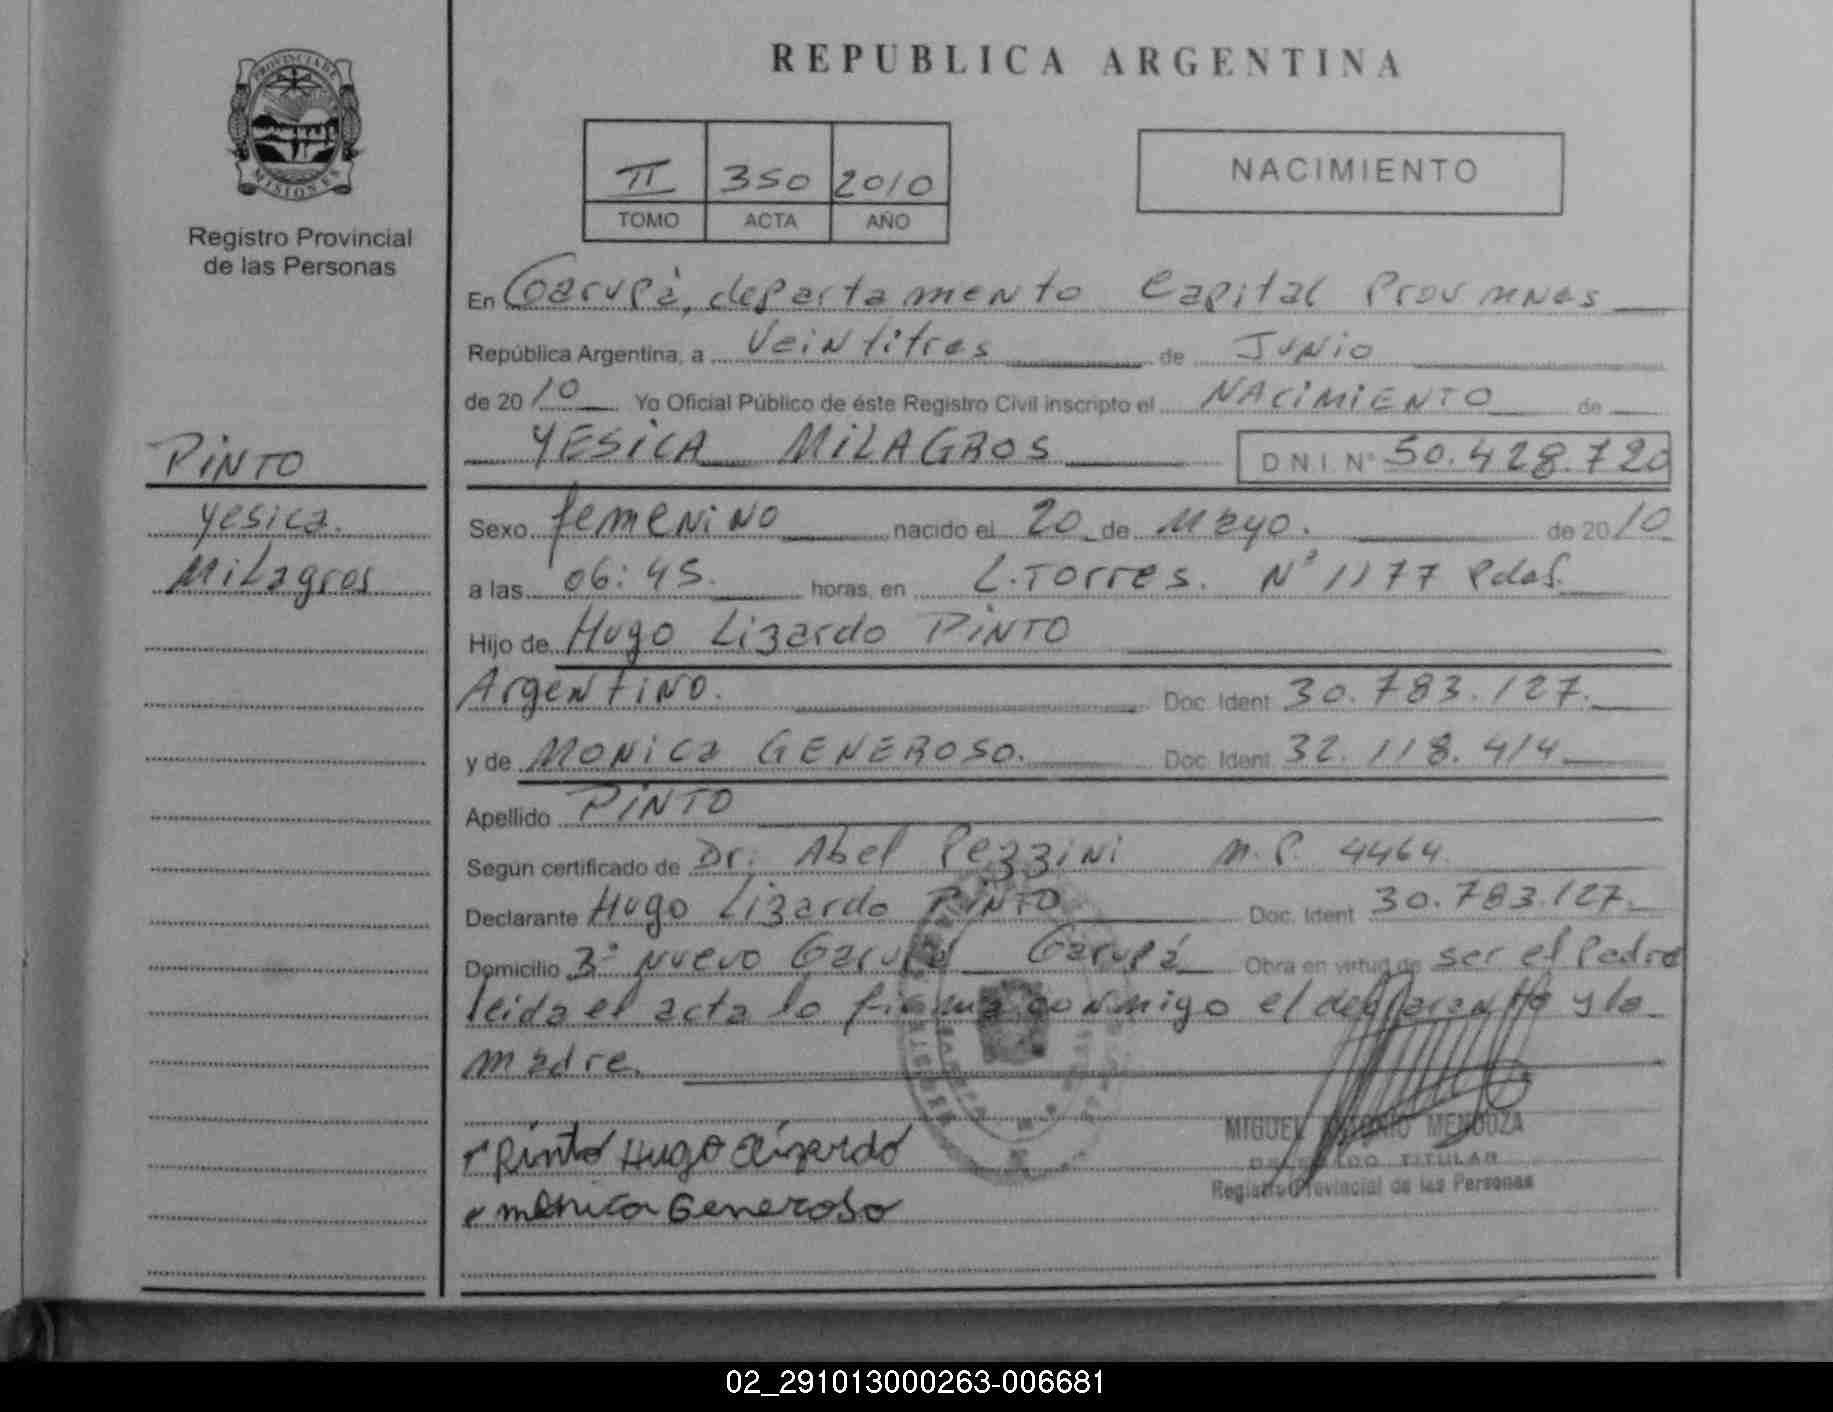 REPUBLICA ARGENTINA
PROVINCIA DE
MISIONES
Registro Provincial
de las Personas
II 350 2010
TOMO ACTA AÑO
NACIMIENTO
En Garupá, departamento Capital Prov mnes
República Argentina, a Veintitres de Junio
de 2010 Yo Oficial Público de éste Registro Civil inscripto el NACIMIENTO de
YESICA MILAGROS D.N.I. N° 50.428.720
PINTO
Yesica.
Milagros
Sexo femenino nacido el 20 de Mayo. de 2010
a las 06:45. horas, en L. Torres. N° 1177 Pdas.
Hijo de Hugo Lizardo PINTO
Argentino. Doc. Ident 30.783.127.
y de MONICA GENEROSO. Doc. Ident 32.118.414
Apellido PINTO
Según certificado de Dr. Abel Pezzini M.P. 4464.
Declarante Hugo Lizardo PINTO Doc. Ident 30.783.127.
Domicilio 3° Nuevo Garupá Garupá Obra en virtud de ser el Padre
leida el acta lo firma conmigo el declarante y la
madre.
Pinto Hugo Lizardo
monica Generoso
MIGUEL ANTONIO MENDOZA
DELEGADO TITULAR
Registro Provincial de las Personas
02_291013000263-006681